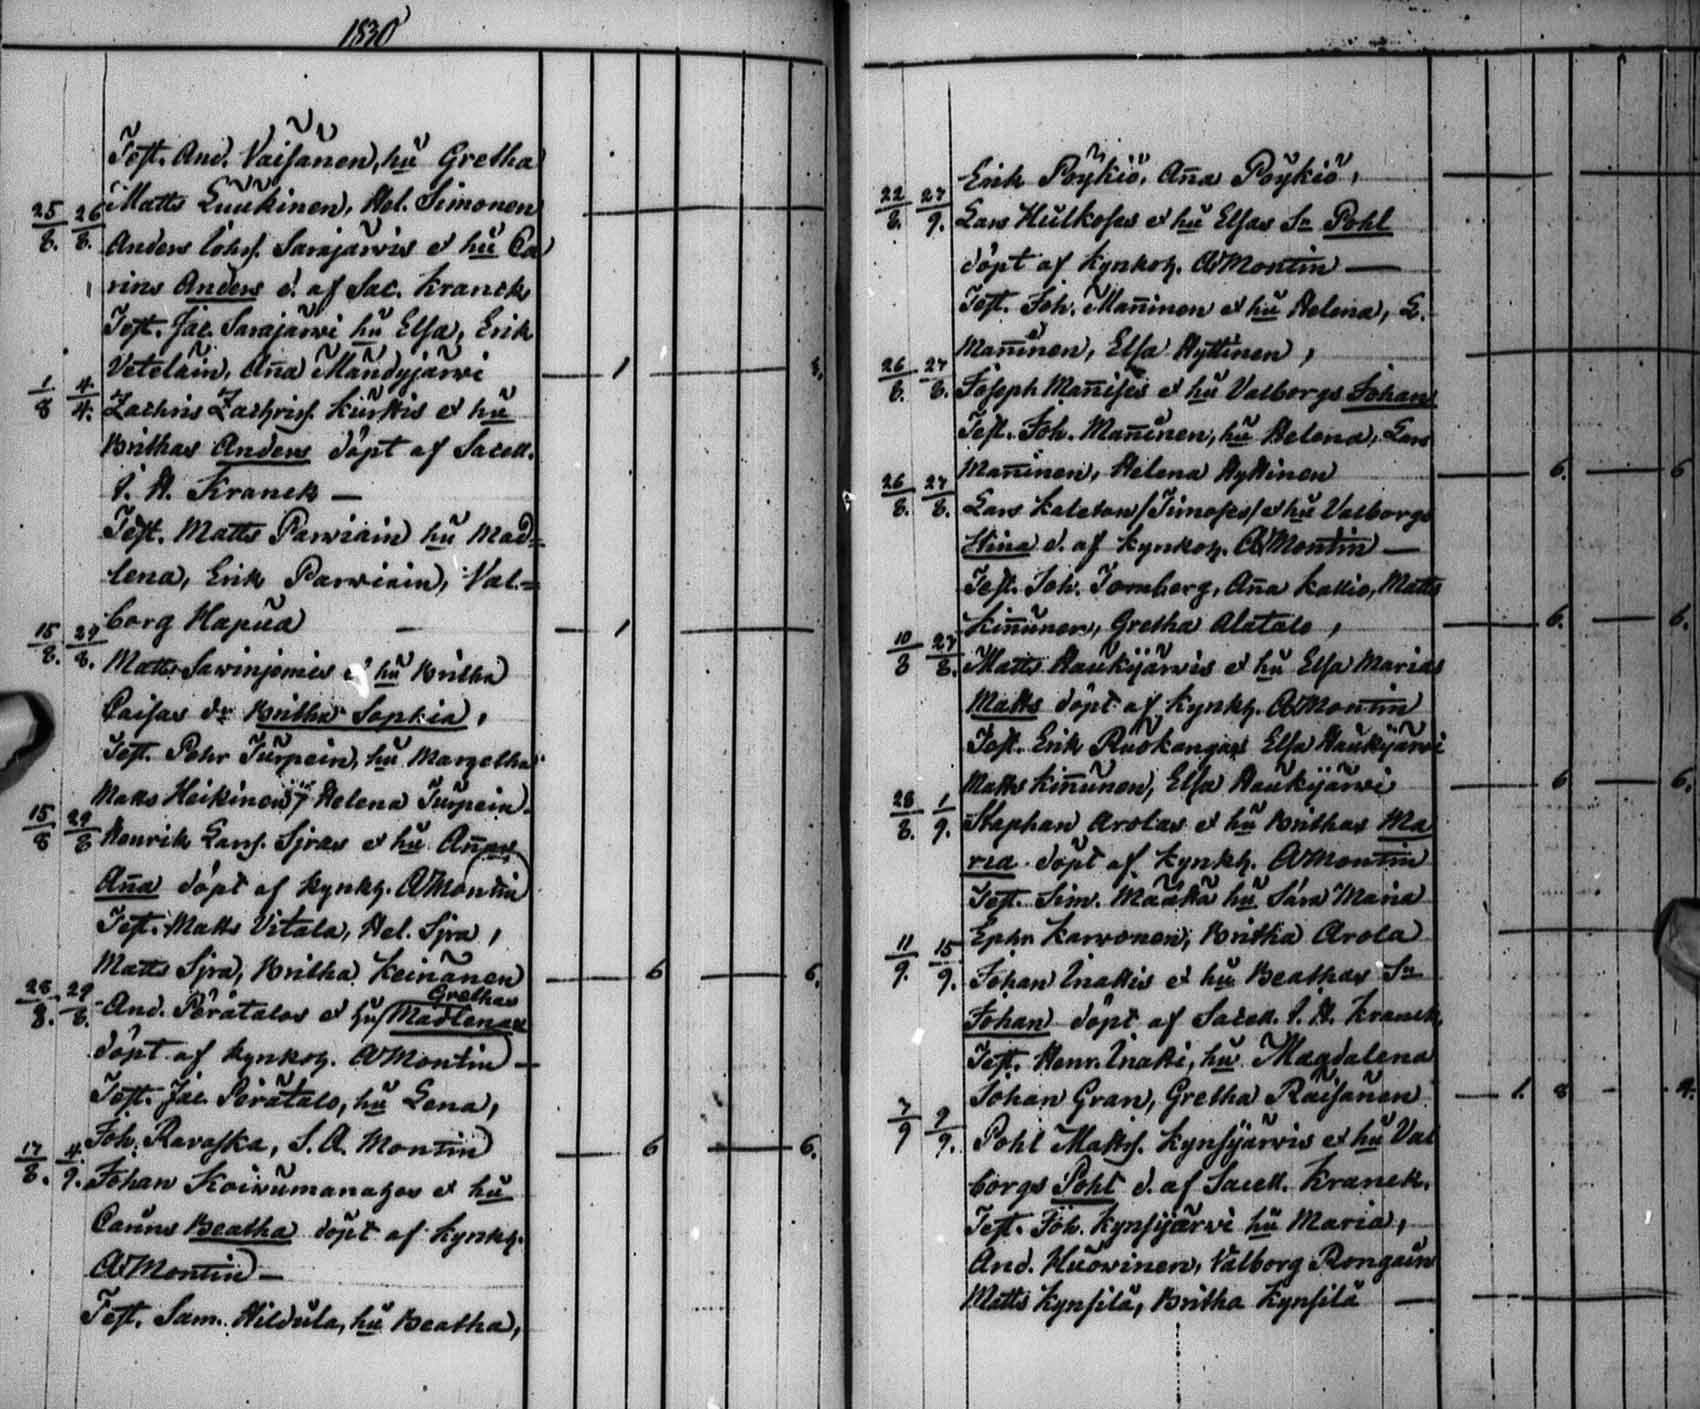 1830
Test. And. Väisänen, hū Gretha
Matts Luukinen, Hel. Simonen
25/8. 26/8. Anders Johss. Sarajärvis et hū Ca
rins Anders d. af Sac. Kranck
Test. Jac. Sarajärvi hū Elsa, Erik
Vetelāin, Aña Mändyjärvi 1
1/8 4/4. Zachris Zachriss. Kurttis et hū
Brithas Anders döpt af Sacell.
J. H. Kranck —
Test. Matts Parviain hū Mad=
lena, Erik Parviain, Val.=
borg Hapua — 1
15/8. 29/8. Matts Savinjemis et hū Britha
Caisas dr Britha Sophia,
Test. Pehr Turpein, hū Margetha
Matts Heikinen, Helena Turpein.
15/8 29/8 Henrik Larss. Sjras et hū Añas
Aña döpt af Kynkh. A Montin
Test. Matts Vitala, Hel. Sjra,
Matts Sjra, Britha Keinänen 6 6.
Grethas
28/8. 29/8. And. Perätalos et hū Madlenas
döpt af Kynkoh. A Montin —
Test. Jac. Perätalo, hū Lena,
Joh. Ravaska, S. A. Montin 6 6.
17/8. 4/9. Johan Koivumanahos et hū
Carins Beatha döpt af Kynkh.
A Montin —
Test. Sam. Hildula, hū Beatha,
Erik Pöykiö, Aña Pöykiö,
22/8. 27/9. Lars Hulkoses et hū Elsas Sn Pohl
döpt af Kynkoh. A Montin —
Test. Joh. Mañinen et hū Helena, L.
Mañinen, Elsa Hyttinen,
26/8. 27/8. Joseph Mañises et hū Valborgs Johan
Test. Joh. Mañinen, hū Helena, Lars
Mañinen, Helena Hyttinen 6. 6
26/8. 27/8. Lars Kaletons/Timoses/ et hū Valborgs
Stina d. af Kynkoh. A Montin —
Test. Joh. Tornberg, Aña Kallio, Matts
Kiñunen, Gretha Alatalo, 6. 6.
10/8 27/8. Matts Haukijärvis et hū Elsa Marias
Matts döpt af Kynkh. A Montin
Test. Erik Ruokangas Elsa Haukijärvi
Matts Kiñunen, Elsa Haukijärvi 6 6.
28/8. 1/9. Staphan Arolas et hū Brithas Ma
ria döpt af Kynkh. A Montin
Test. Sim. Määttä hū Sara Maria
Ephr. Karvonen, Britha Arola
11/9. 15/9. Johan Inattis et hū Beathas Sn
Johan döpt af Sacell. J. H. Kranck,
Test. Henr. Inatti, hū Magdalena
Johan Gran, Gretha Räisänen 1. 8 4.
7/9 9/9. Pohl Mattss. Kynsijärvis et hū Val
borgs Pohl d. af Sacell. Kranck.
Test. Joh. Kynsijärvi hū Maria,
And. Huovinen, Valborg Rongain
Matts Kynsilä, Britha Kynsilä —